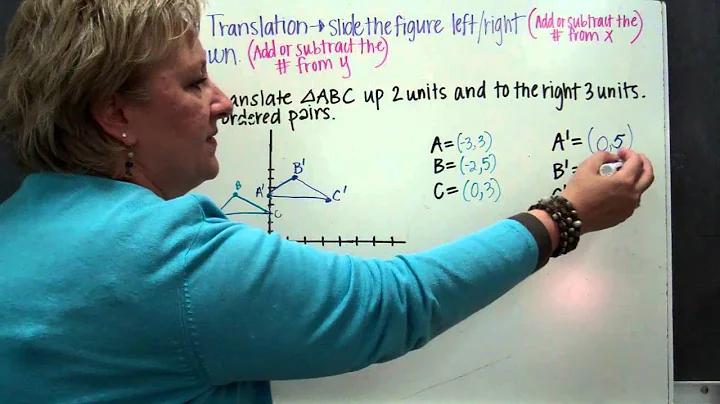 Translation → slide the figure left/right (Add or subtract the # from x)
wn. (Add or subtract the # from y)
anslate △ABC up 2 units and to the right 3 units.
ordered pairs.
A = (-3,3) A' = (0,5)
B = (-2,5) B' =
C = (0,3) C'
B A' B' C'
C